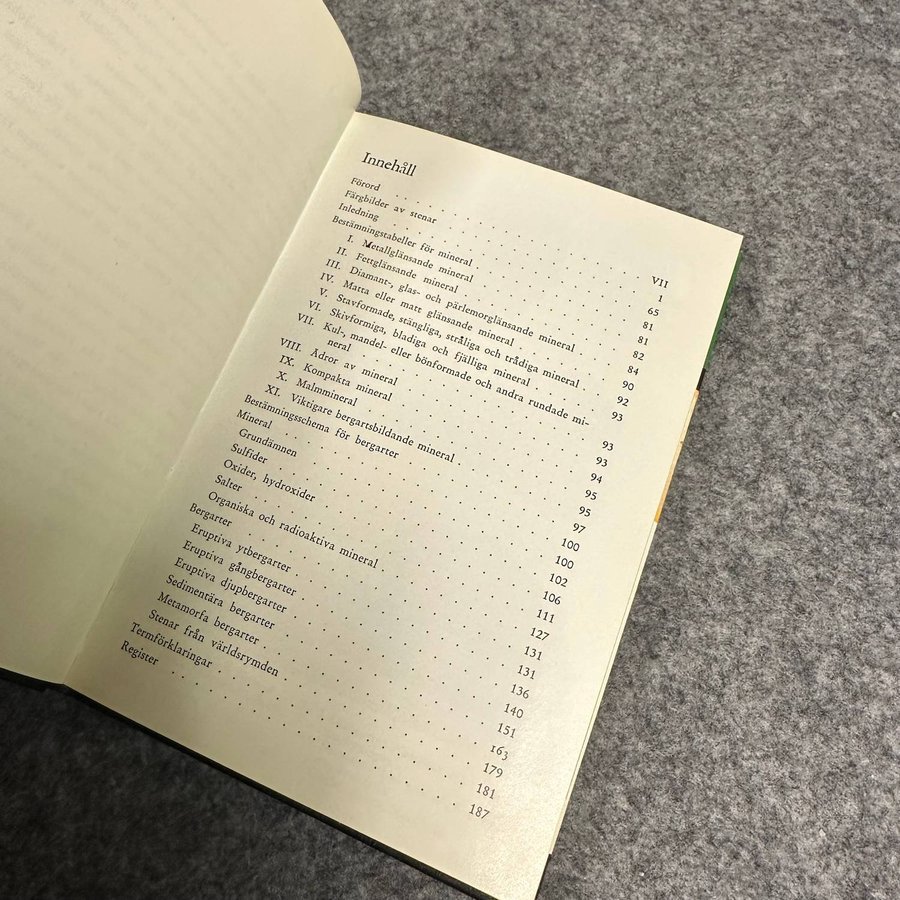 Innehåll
Förord . . . . . . . . . . VII
Färgbilder av stenar . . . . . . . . . . 1
Inledning . . . . . . . . . . 65
Bestämningstabeller för mineral . . . . . . . . . . 81
I. Metallglänsande mineral . . . . . . . . . . 81
II. Fettglänsande mineral . . . . . . . . . . 82
III. Diamant-, glas- och pärlemorglänsande mineral . . . 84
IV. Matta eller matt glänsande mineral . . . . . 90
V. Stavformade, stängliga, stråliga och trådiga mineral . . 92
VI. Skivformiga, bladiga och fjälliga mineral . . . . 93
VII. Kul-, mandel- eller bönformade och andra rundade mi-
neral . . . . . . . . . . 93
VIII. Ådror av mineral . . . . . . . . . . 93
IX. Kompakta mineral . . . . . . . . . . 94
X. Malmmineral . . . . . . . . . . 95
XI. Viktigare bergartsbildande mineral . . . . . 95
Bestämningsschema för bergarter . . . . . . . . 97
Mineral . . . . . . . . . . 100
Grundämnen . . . . . . . . . . 100
Sulfider . . . . . . . . . . 102
Oxider, hydroxider . . . . . . . . . . 106
Salter . . . . . . . . . . 111
Organiska och radioaktiva mineral . . . . . . . 127
Bergarter . . . . . . . . . . 131
Eruptiva ytbergarter . . . . . . . . . . 131
Eruptiva gångbergarter . . . . . . . . . . 136
Eruptiva djupbergarter . . . . . . . . . . 140
Sedimentära bergarter . . . . . . . . . . 151
Metamorfa bergarter . . . . . . . . . . 163
Stenar från världsrymden . . . . . . . . . . 179
Termförklaringar . . . . . . . . . . 181
Register . . . . . . . . . . 187